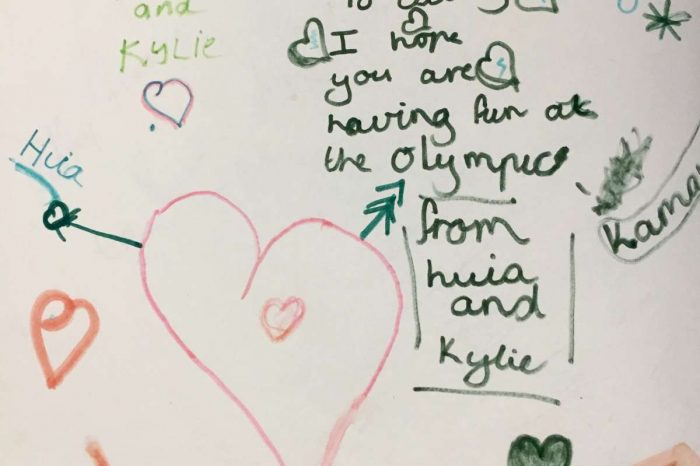 and
Kylie
I hope
you are
having fun at
the Olympics
from
huia
and
Kylie
Huia